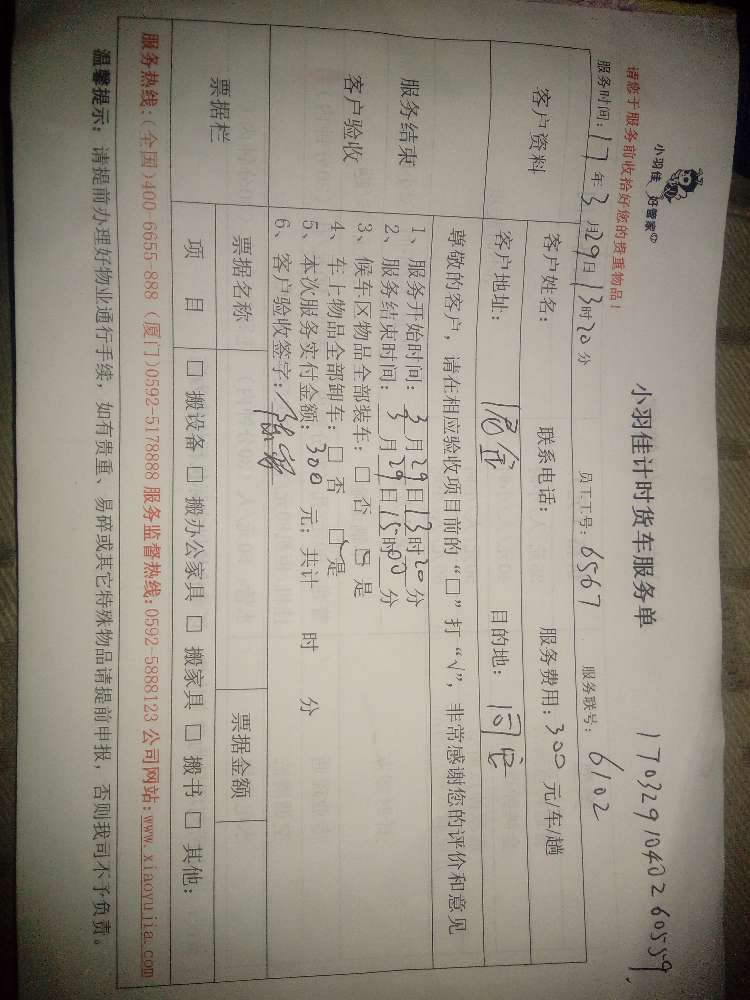 小羽佳 好管家
小羽佳计时货车服务单
1703291040260559
请您于服务前收拾好您的贵重物品！
服务时间：17年3月29日13时20分 员工工号：6567 服务联号：6102
客户资料
客户姓名： 联系电话： 服务费用：300 元/车/趟
客户地址： 目的地：同安
服务结束
客户验收
尊敬的客户，请在相应验收项目前的“□”打“√”，非常感谢您的评价和意见
1、服务开始时间：3月29日13时20分
2、服务结束时间：3月29日15时00分
3、候车区物品全部装车：□ 否 □ 是
4、车上物品全部卸车：□ 否 □ 是
5、本次服务实付金额：300 元；共计 时 分
6、客户验收签字：
票据栏
票据名称 票据金额
项 目 □ 搬设备 □ 搬办公家具 □ 搬家具 □ 搬书 □ 其他：
服务热线：（全国）400-6655-888（厦门）0592-5178888 服务监督热线：0592-5888123 公司网站：www.xiaoyujia.com
温馨提示：请提前办理好物业通行手续，如有贵重、易碎或其它特殊物品请提前申报，否则我司不予负责。